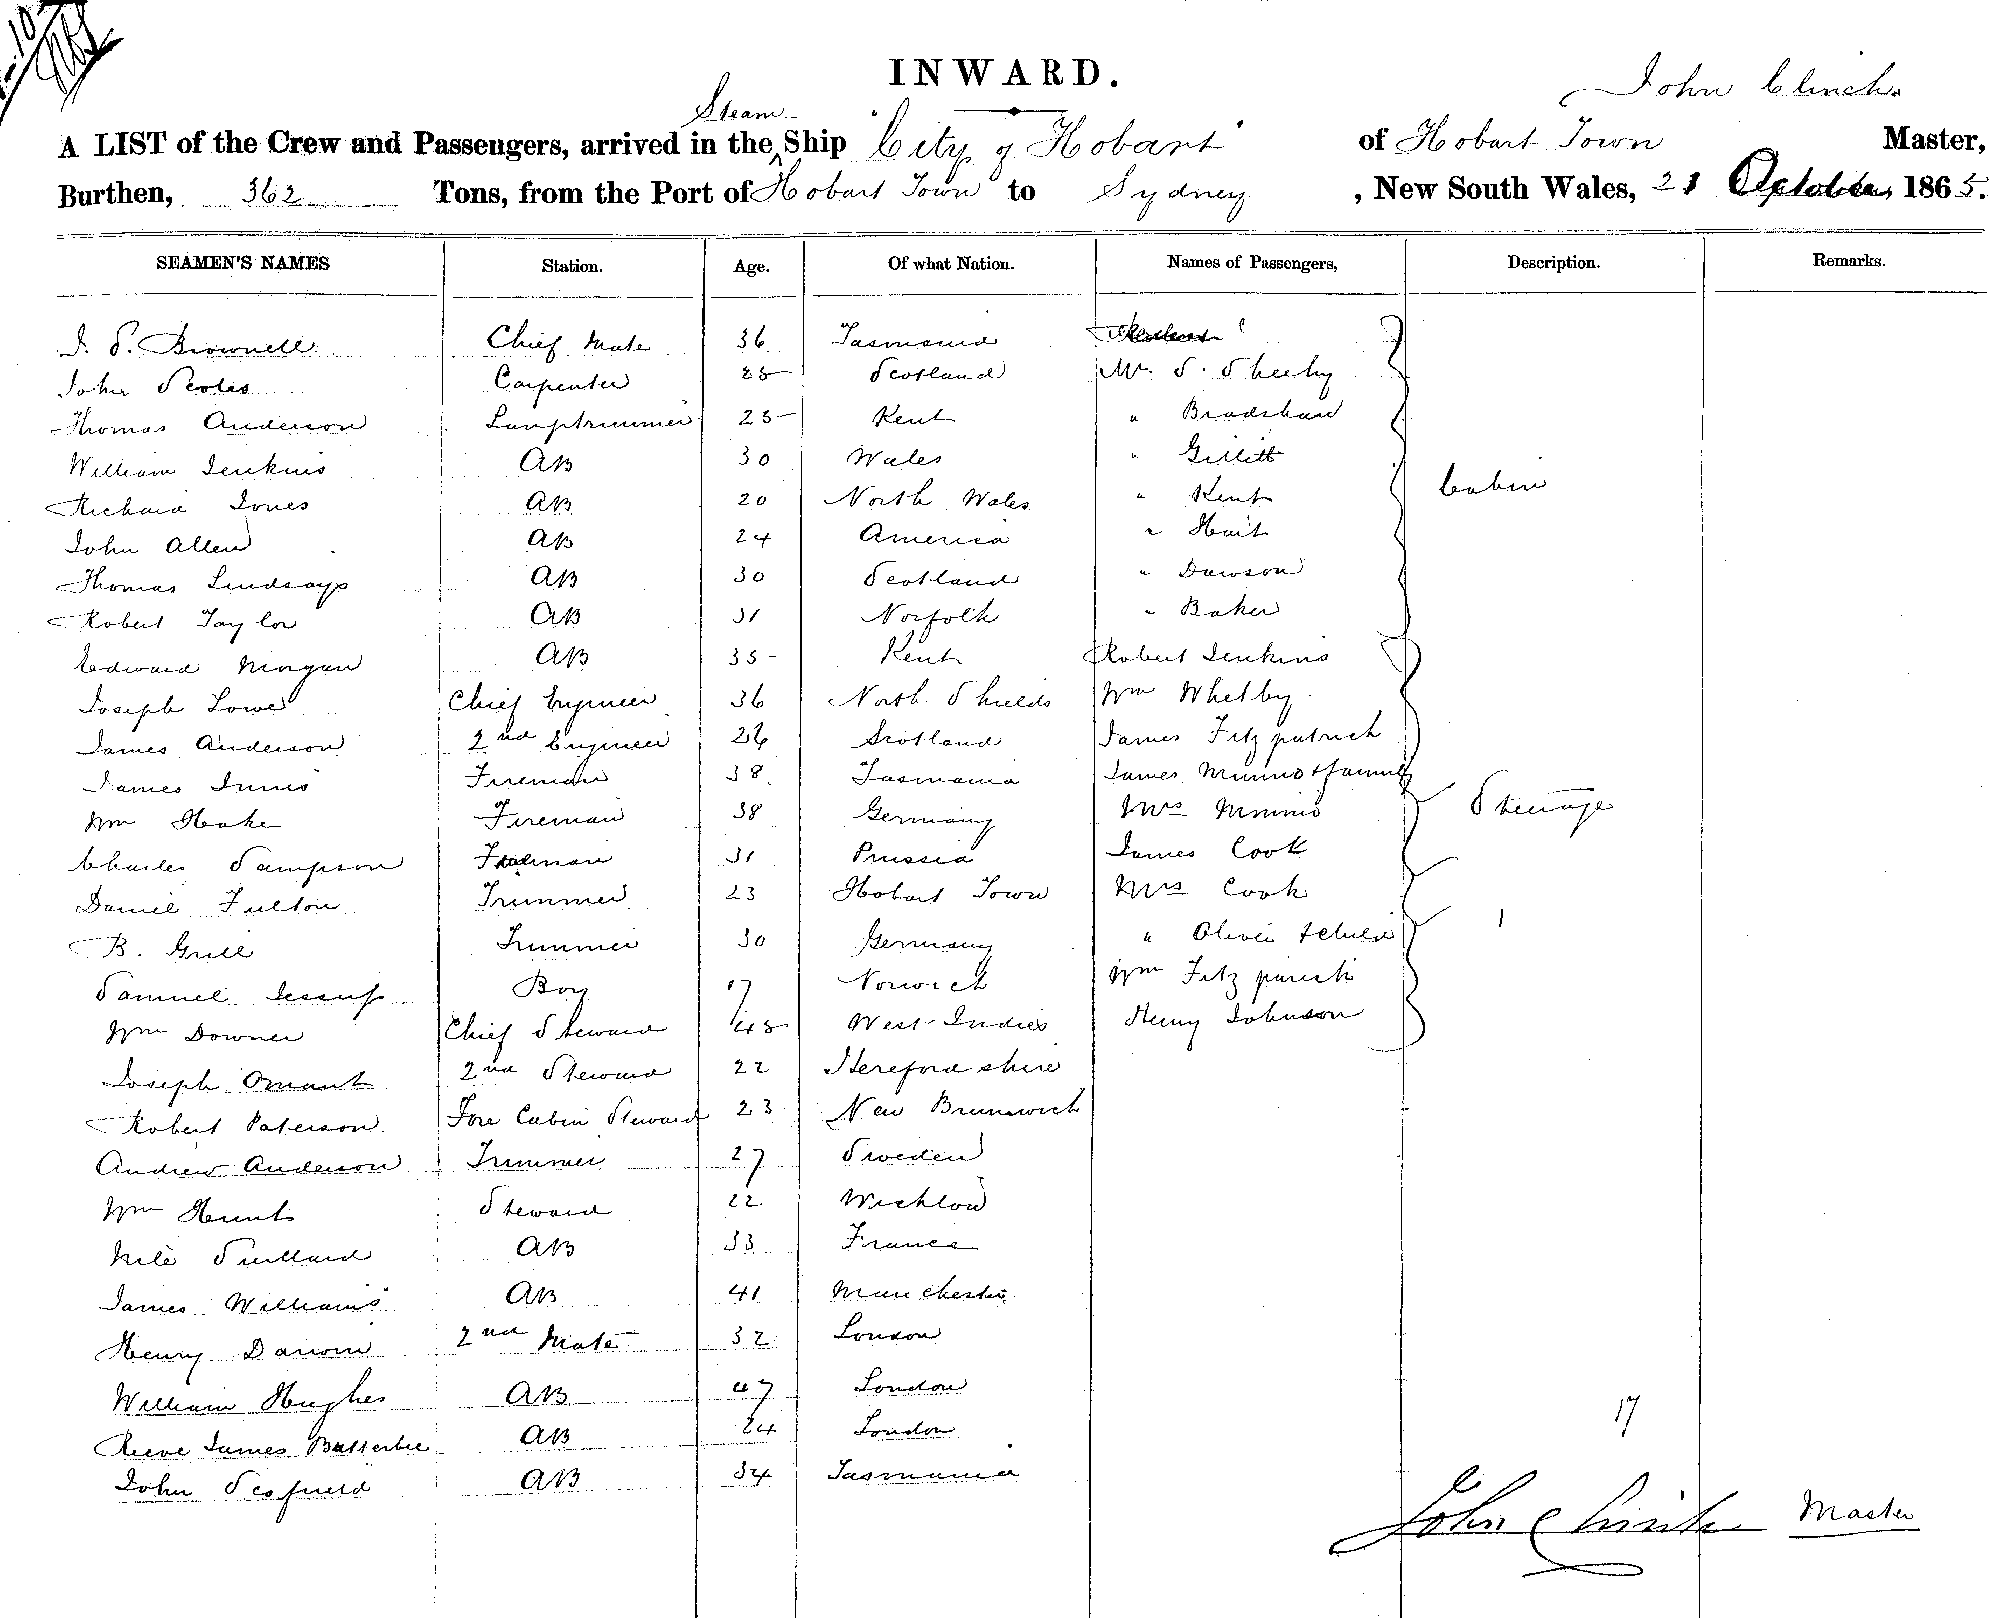 INWARD.
John Clinch
Steam
A LIST of the Crew and Passengers, arrived in the Ship "City of Hobart" of Hobart Town Master,
Burthen, 362 Tons, from the Port of Hobart Town to Sydney, New South Wales, 21 October 1865.
SEAMEN'S NAMES Station. Age. Of what Nation. Names of Passengers, Description. Remarks.
J. S. Brownell Chief Mate 36 Tasmania
John Scoles Carpenter 25 Scotland Mr. S. Sheehy
Thomas Anderson Lamptrimmer 25 Kent " Bradshaw
William Jenkins AB 30 Wales " Gillett
Richard Jones AB 20 North Wales " Kent Cabin
John Allen AB 24 America " Hait
Thomas Lindsay AB 30 Scotland " Dawson
Robert Taylor AB 31 Norfolk " Baker
Edward Morgan AB 35 Kent Robert Jenkins
Joseph Lowe Chief Engineer 36 North Shields Wm Whelby
James Anderson 2nd Engineer 26 Scotland James Fitzpatrick
James Innis Fireman 38 Tasmania James Minnis & family
Wm Hake Fireman 38 Germany Mrs Minnis Steerage
Charles Sampson Fireman 31 Prussia James Cook
Daniel Fulton Trimmer 23 Hobart Town Mrs Cook
B. Grill Trimmer 30 Germany " Oliver & child 1
Samuel Jessup Boy 17 Norwich Wm Fitzpatrick
Wm Downer Chief Steward 45 West Indies Henry Johnson
Joseph Omant 2nd Steward 22 Herefordshire
Robert Paterson Fore Cabin Steward 23 New Brunswick
Andrew Anderson Trimmer 27 Sweden
Wm Hunt Steward 22 Wicklow
AB 33 France
James Williams AB 41 Manchester
Henry Darwin 2nd Mate 32 London
William Hughes AB 47 London
Reeve James Batterbee AB 24 London
John Scofield AB 34 Tasmania
17
John Clinch Master